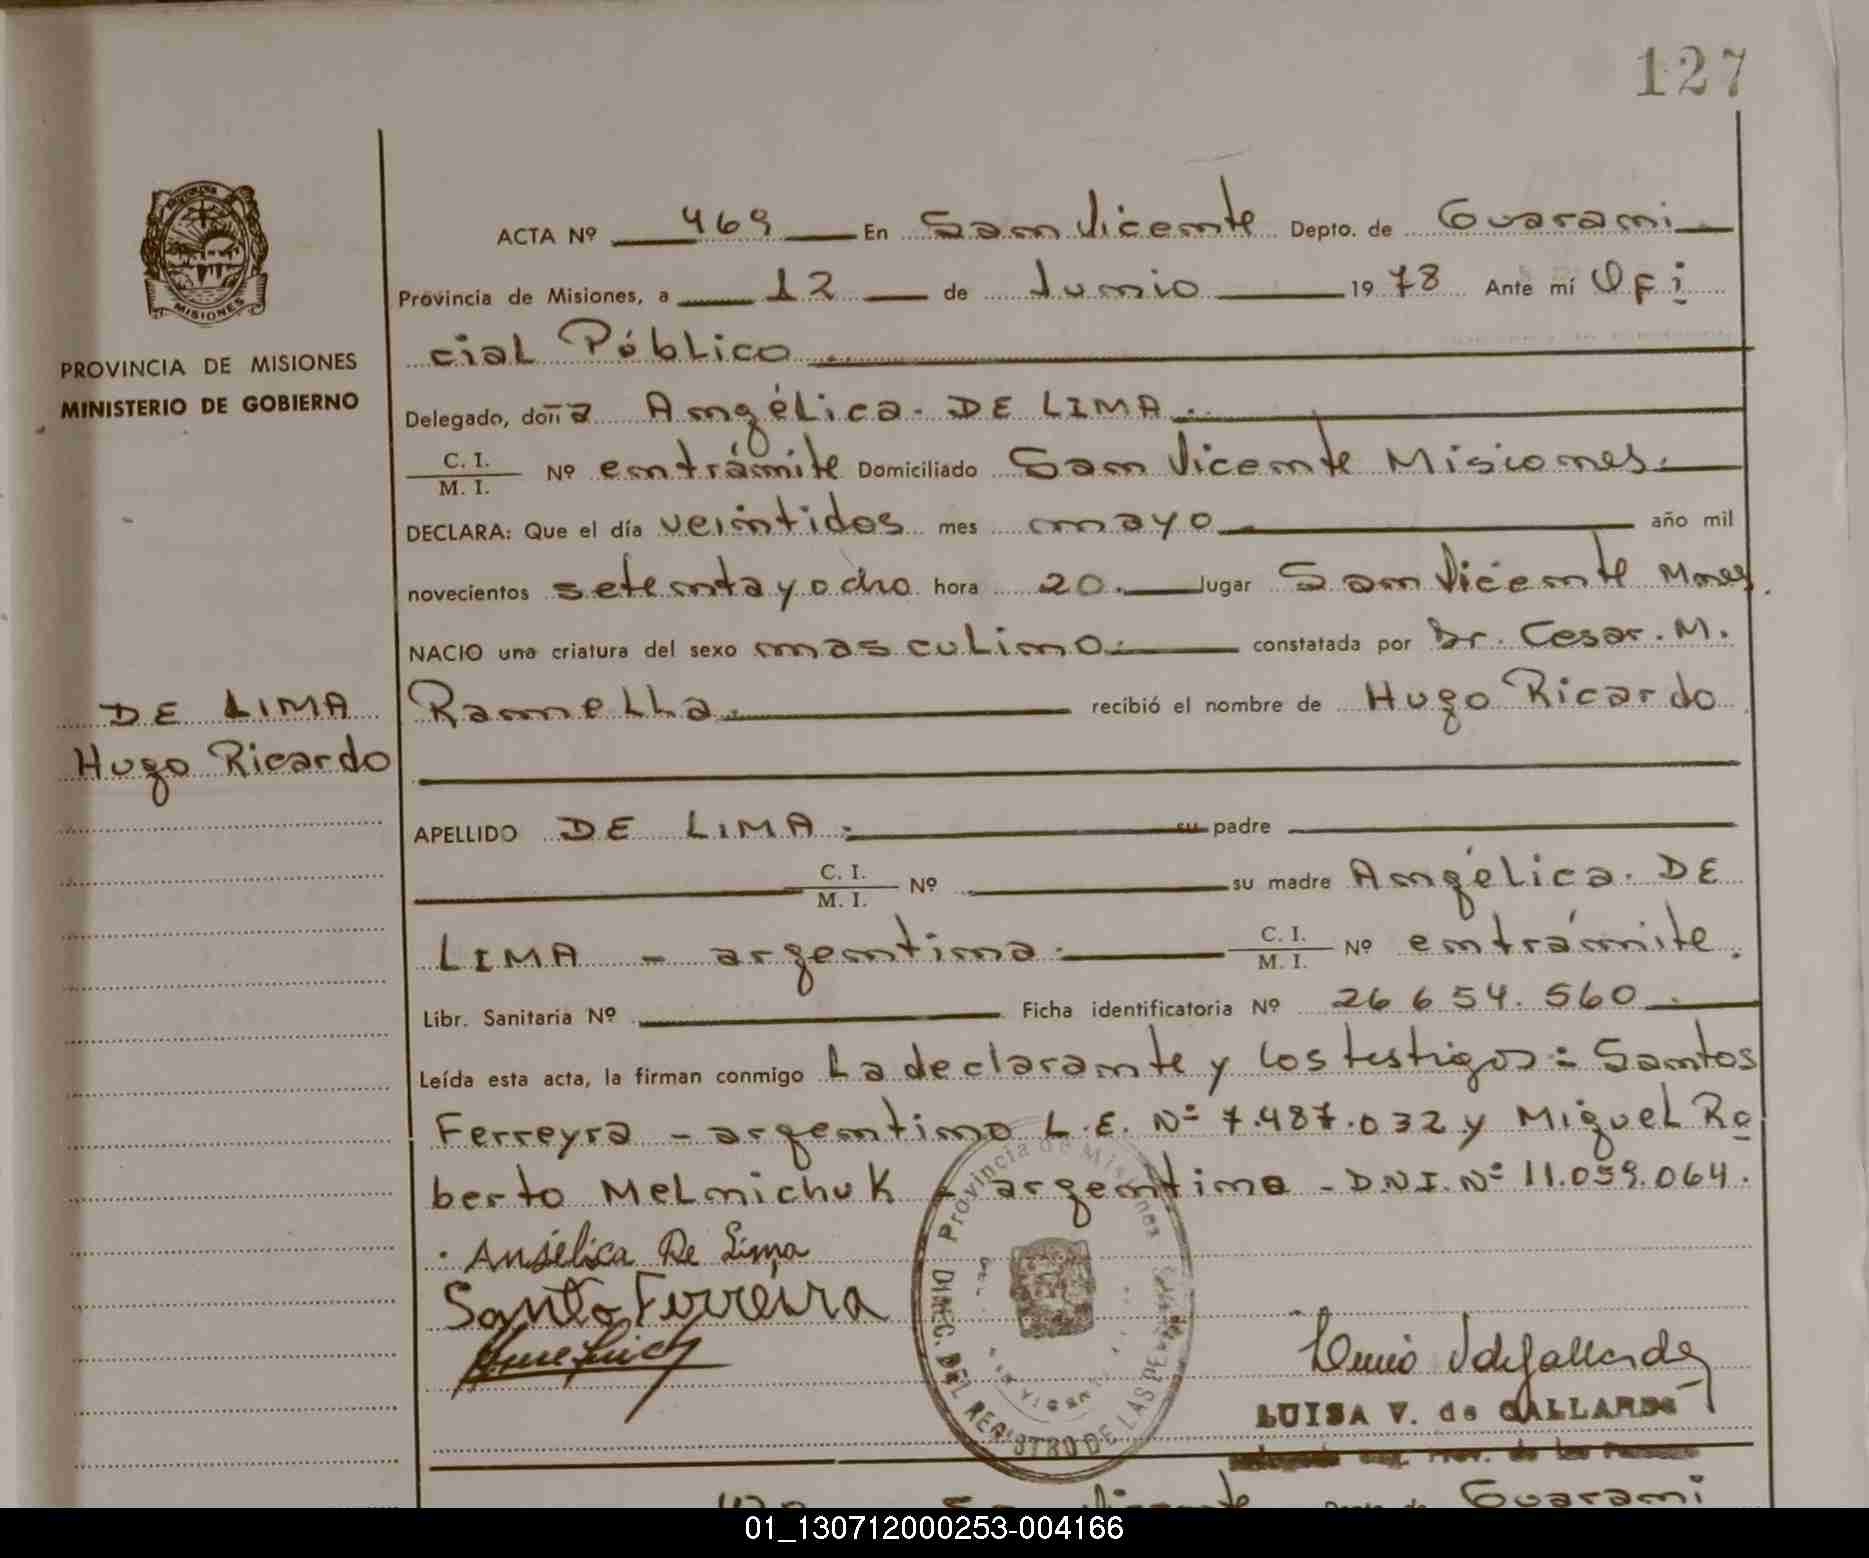 127
ACTA Nº 469 En San Vicente Depto. de Guarani
Provincia de Misiones, a 12 de Junio 1978 Ante mí Ofi
cial Público
PROVINCIA DE MISIONES
MINISTERIO DE GOBIERNO
Delegado, doña Angélica. DE LIMA.
C. I.
M. I. Nº entrámite Domiciliado San Vicente Misiones.
DECLARA: Que el día veintidos mes mayo año mil
novecientos setenta y ocho hora 20. lugar San Vicente Mnes.
NACIO una criatura del sexo masculino. constatada por Dr. Cesar. M.
Ramella. recibió el nombre de Hugo Ricardo
DE LIMA
Hugo Ricardo
APELLIDO DE LIMA. su padre
C. I.
M. I. Nº su madre Angélica. DE
LIMA - argentina. C. I.
M. I. Nº entrámite.
Libr. Sanitaria Nº Ficha identificatoria Nº 26654.560.
Leída esta acta, la firman conmigo La declarante y los testigos: Santos
Ferreyra - argentino L.E. Nº 7.487.032 y Miguel Ro
berto Melnichuk - argentino - D.N.I. Nº 11.059.064.
Angélica De Lima
Santo Ferreira
LUISA V. de GALLARDO
Provincia de Misiones
DIREC. DEL REGISTRO DE LAS PERSONAS
MISIONES
San Vicente Depto. de Guarani
01_130712000253-004166